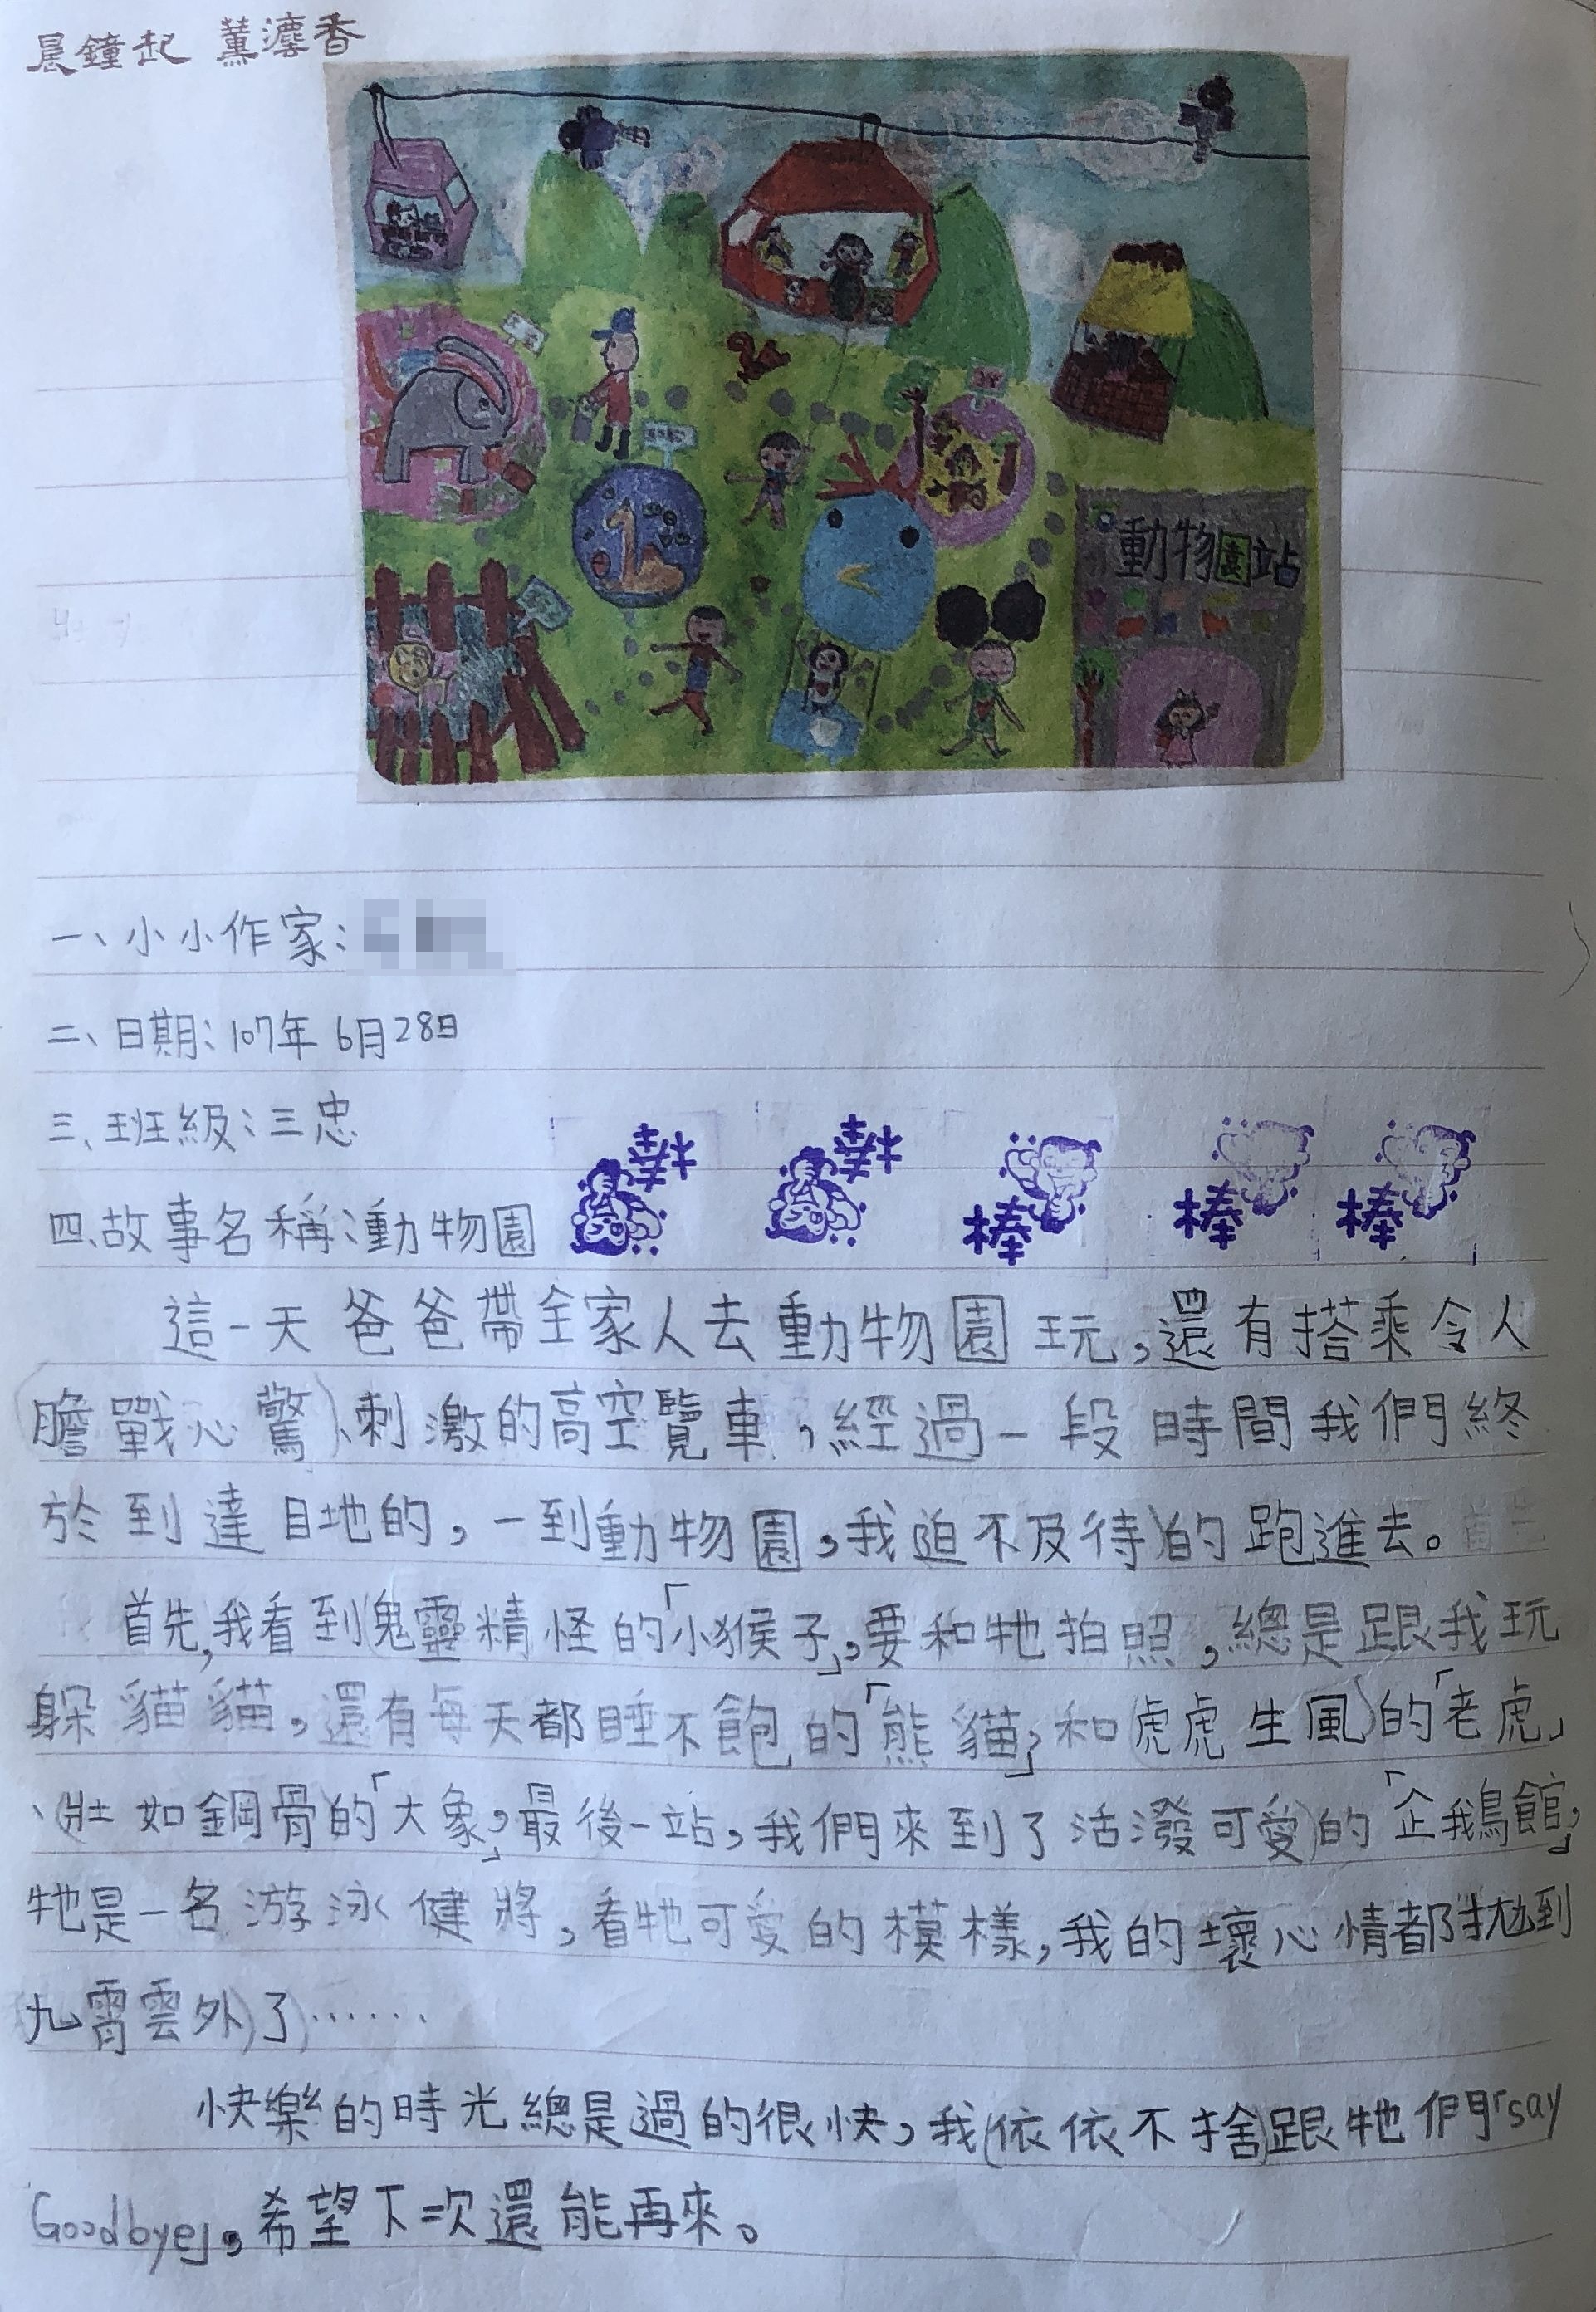 晨鐘起 薰塵香
動物園站
一、小小作家:
二、日期:107年6月28日
三、班級:三忠
四、故事名稱:動物園
棒 棒 棒 棒 棒
這一天爸爸帶全家人去動物園玩,還有搭乘令人
膽戰心驚)、刺激的高空覽車,經過一段時間我們終
於到達目地的,一到動物園,我迫不及待)的跑進去。
首先,我看到(鬼靈精怪的「小猴子」,要和牠拍照,總是跟我玩
躲貓貓,還有每天都睡不飽的「熊貓」,和(虎虎生風)的「老虎」
、(壯如鋼骨)的「大象」,最後一站,我們來到了活潑可愛)的「企鵝館」,
牠是一名游泳健將,看牠可愛的模樣,我的壞心情都拋到
九霄雲外)了……
快樂的時光總是過的很快,我(依依不捨)跟牠們「say
Goodbye」,希望下次還能再來。